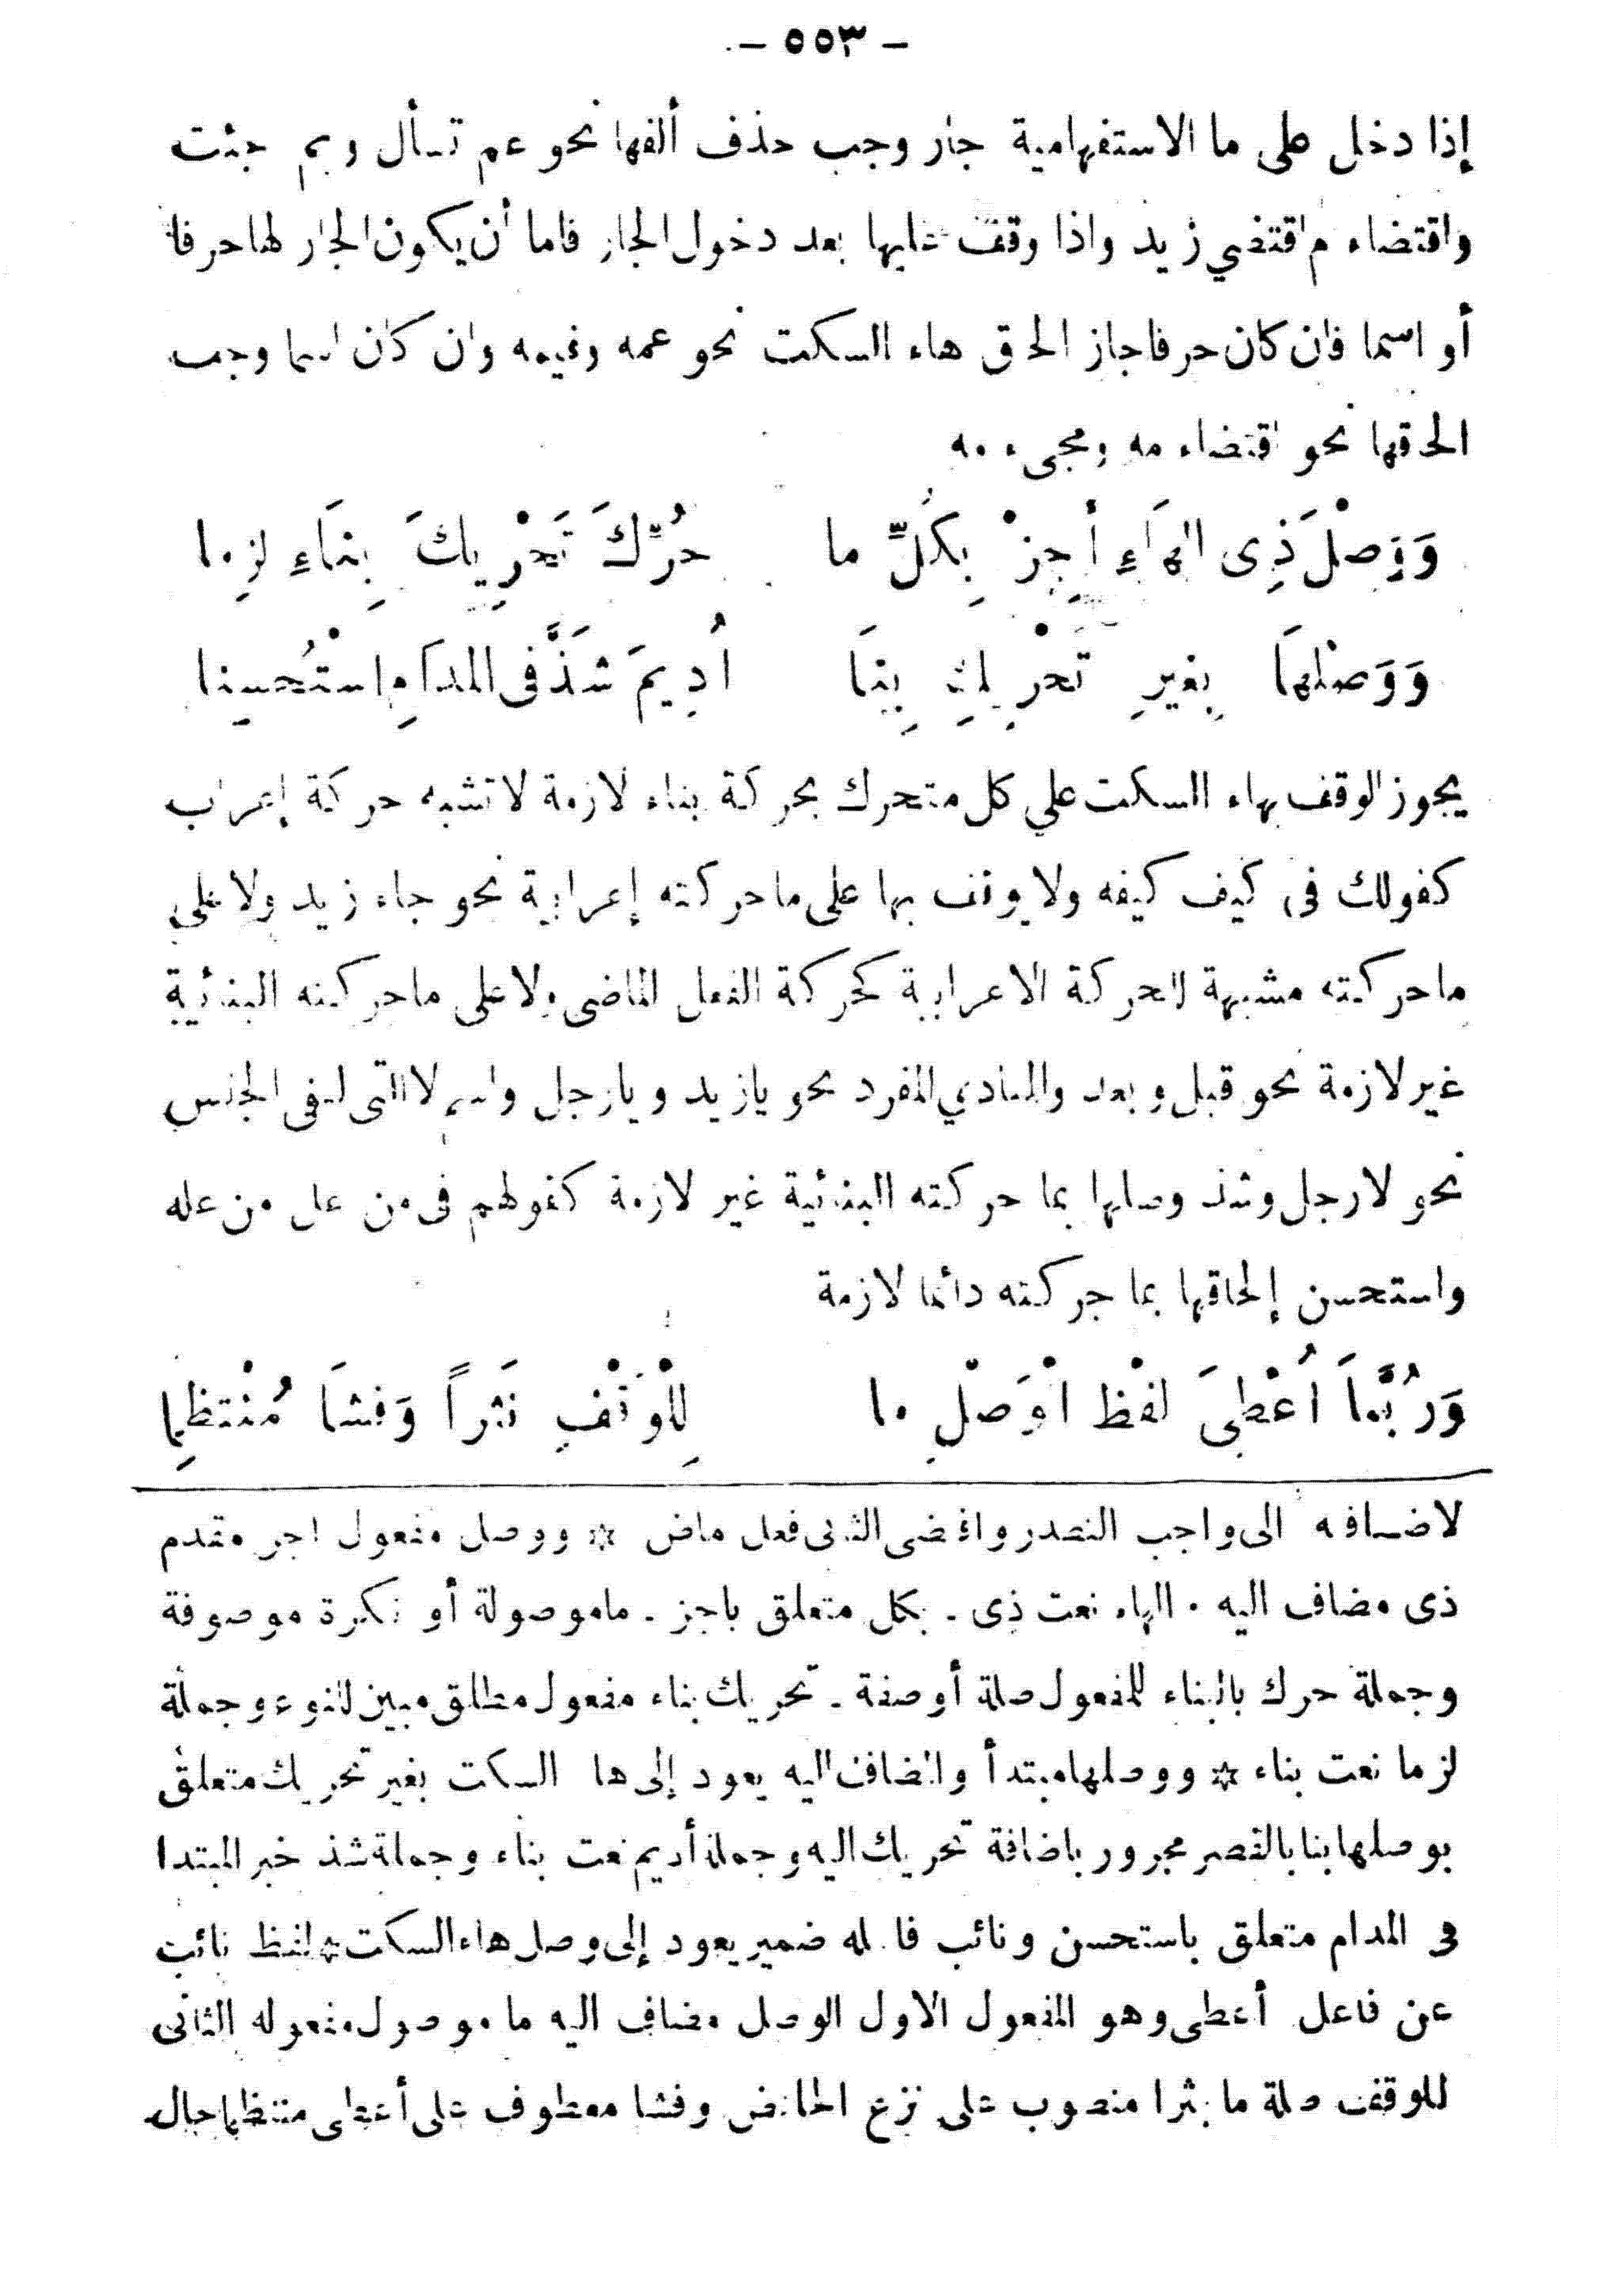 – ٥٥٣ –
إذا دخل على ما الاستفهامية جار وجب حذف ألفها نحو عم تسأل وبم جئت
واقتضاء م اقتضي زيد واذا وقف عليها بعد دخول الجار فاما أن يكون الجار لها حرفا
أو اسما فان كان حرفا جاز الحاق هاء السكت نحو عمه وفيمه وان كان اسما وجب
الحاقها نحو اقتضاء مه ومجىء مه
وَوَصْلَ ذِى الهَاءِ أَجِزْ بِكُلِّ ما حُرِّكَ تَحْرِيكَ بِنَاءٍ لزِما
وَوَصْلهَا بِغيرِ تَحْرِيكِ بِنَا أُدِيمَ شَذَّ فى المدَامِ اسْتُحسِنا
يجوز الوقف بهاء السكت علي كل متحرك بحركة بناء لازمة لا تشبه حركة إعراب
كقولك فى كيف كيفه ولا يوقف بها على ما حركته إعرابية نحو جاء زيد ولا على
ما حركته مشبهة للحركة الاعرابية كحركة الفعل الماضى ولا على ما حركته البنائية
غير لازمة نحو قبل وبعد والمنادي المفرد نحو يا زيد ويا رجل واسم لا التى لنفى الجنس
نحو لا رجل وشذ وصلها بما حركته البنائية غير لازمة كقولهم فى من عل من عله
واستحسن إلحاقها بما حركته دائما لازمة
وَرُبَّمَا أُعْطِىَ لفْظ الْوَصْلِ ما لِلْوَقْفِ نَثراً وَفشَا مُنْتظِما
لاضافه الى واجب التصدر واقتضى الثانى فعل ماض ☆ ووصل مفعول اجر مقدم
ذى مضاف اليه . الهاء نعت ذى . بكل متعلق باجز . ما موصولة أو نكرة موصوفة
وجملة حرك بالبناء للمفعول صلة أو صفة . تحريك بناء مفعول مطلق مبين للنوع وجملة
لزما نعت بناء ☆ ووصلها مبتدأ والمضاف اليه يعود إلى ها السكت بغير تحريك متعلق
بوصلها بنا بالقصر مجرور باضافة تحريك اليه وجملة أديم نعت بناء وجملة شذ خبر المبتدا
فى المدام متعلق باستحسن ونائب فاعله ضمير يعود إلى وصل هاء السكت ☆ لفظ نائب
عن فاعل أعطى وهو المفعول الاول الوصل مضاف اليه ما موصول مفعوله الثانى
للوقف صلة ما نثرا منصوب على نزع الخافض وفشا معطوف على أعطى منتظما حال